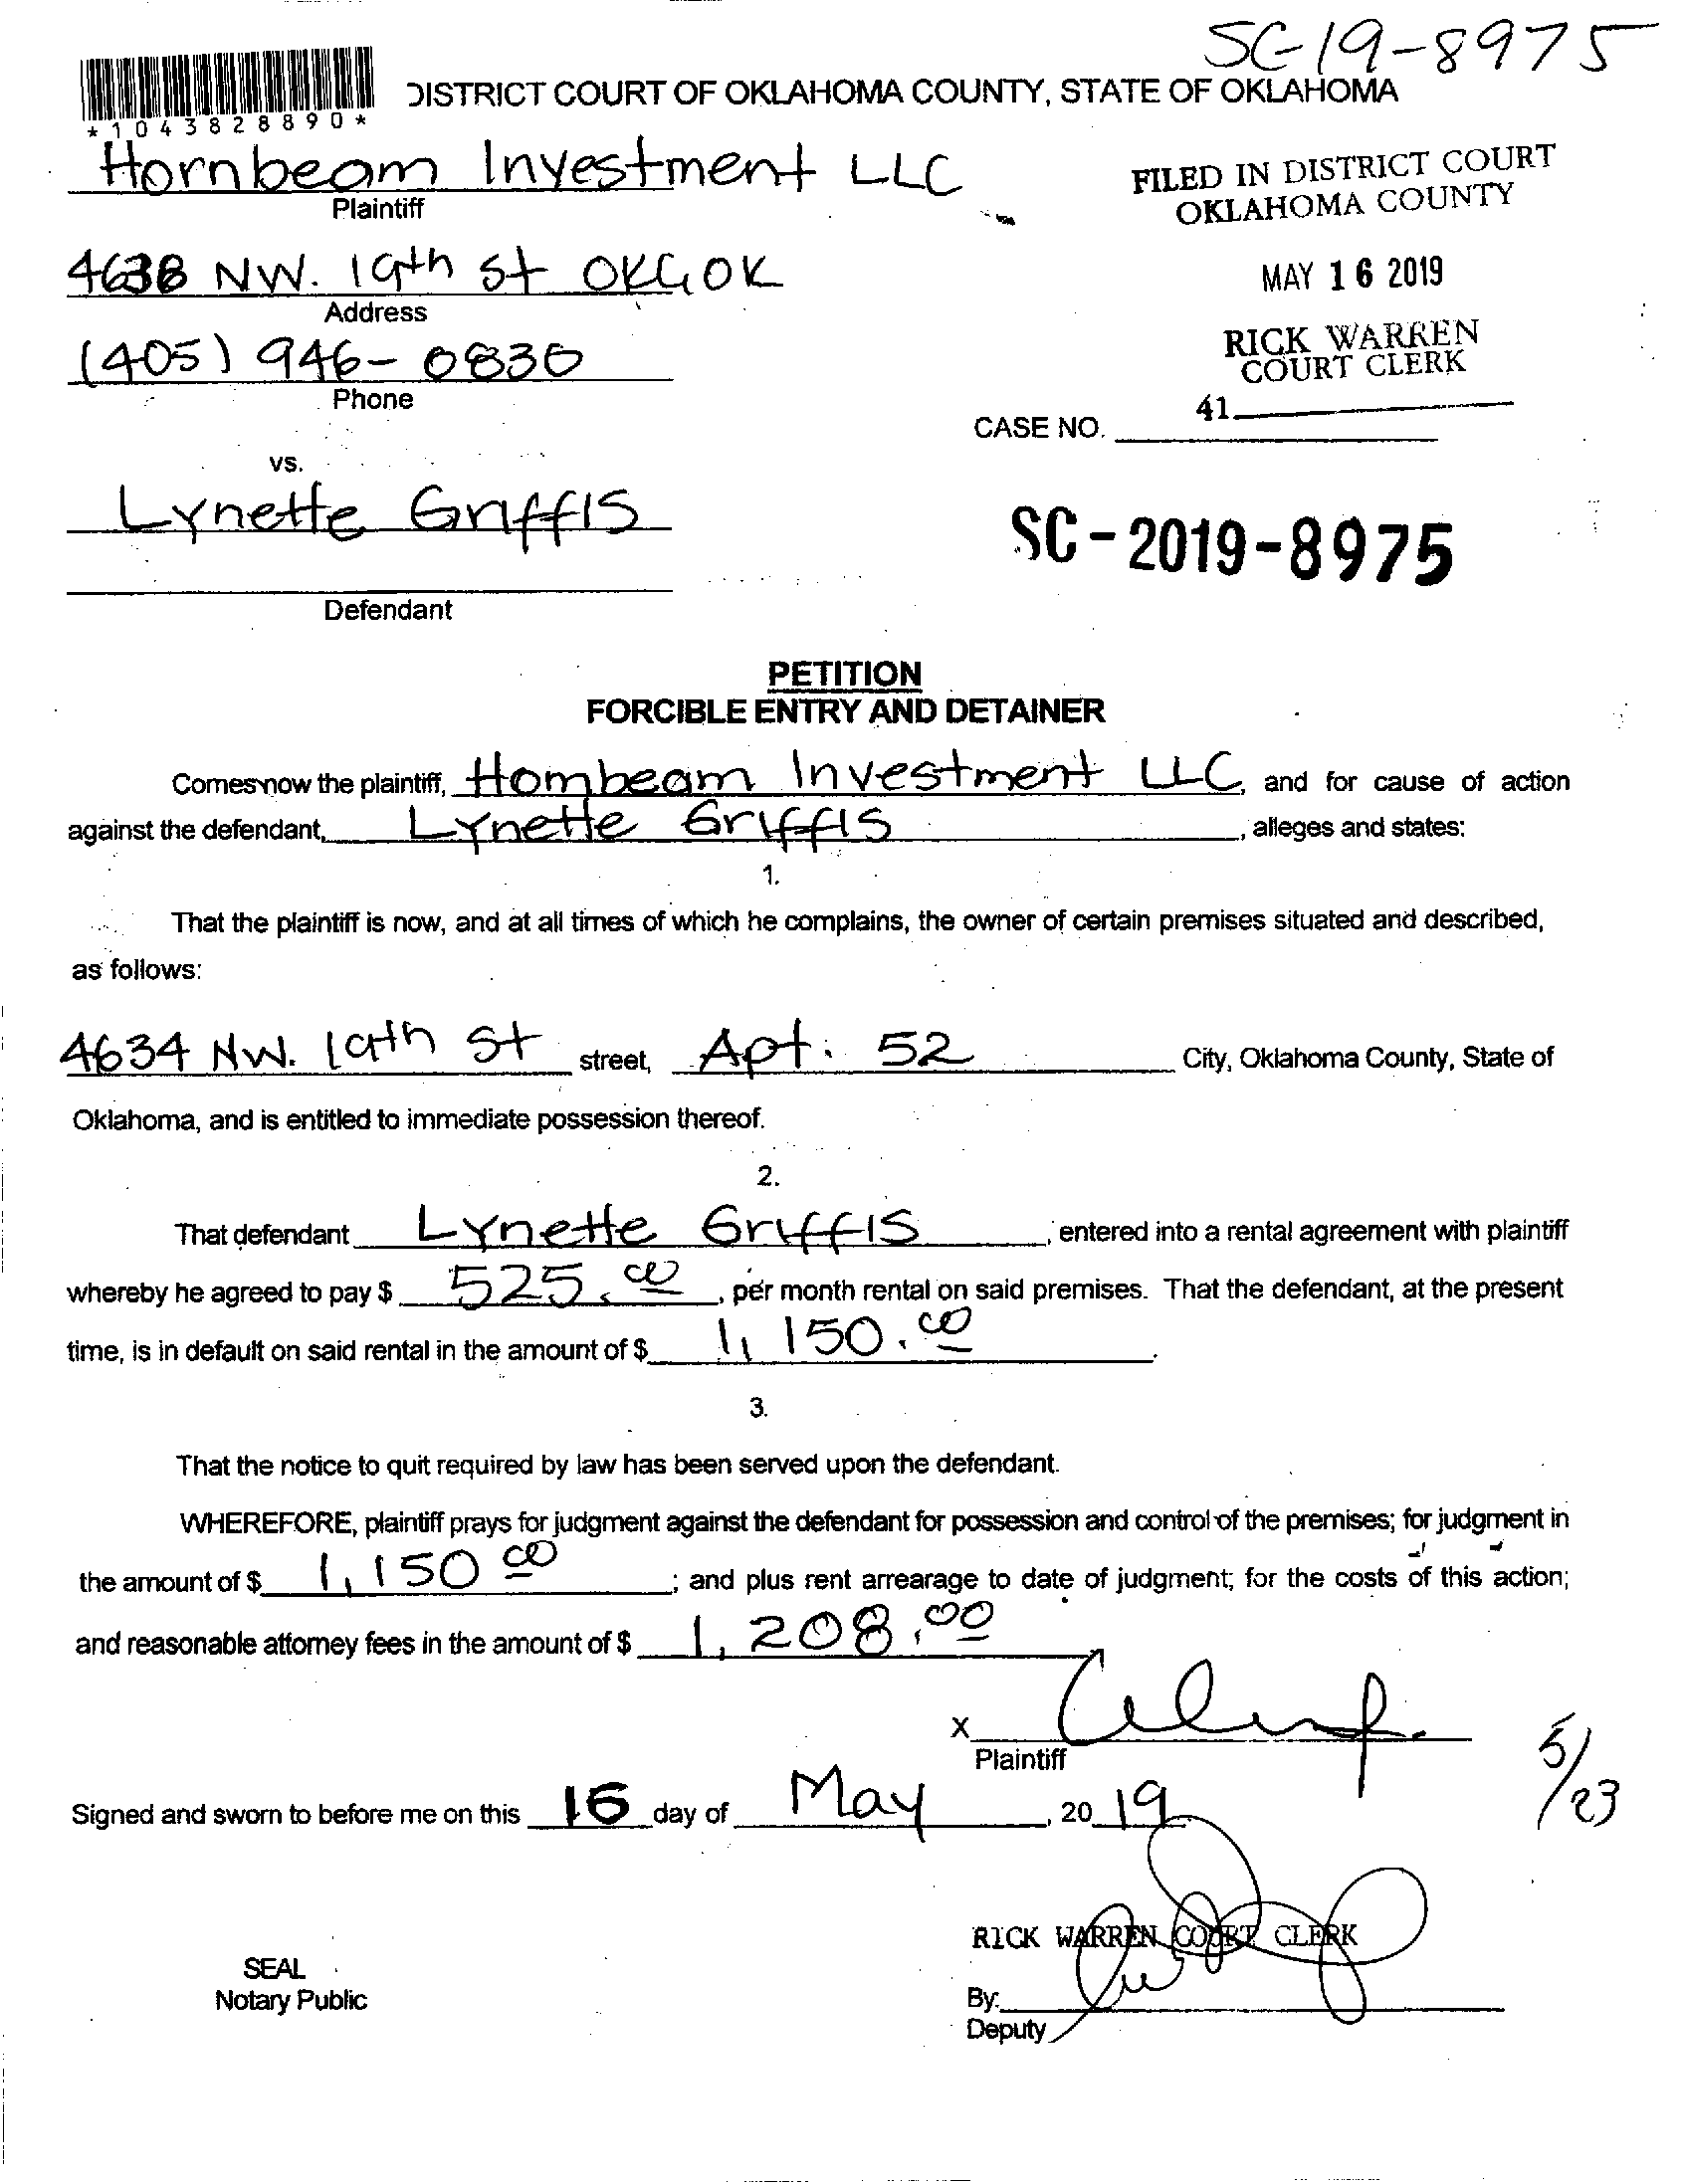 SC-19-8975
DISTRICT COURT OF OKLAHOMA COUNTY, STATE OF OKLAHOMA
*1043828890*
Hornbeam Investment LLC
Plaintiff
FILED IN DISTRICT COURT
OKLAHOMA COUNTY
4638 NW. 19th St OKC, OK
Address
MAY 16 2019
(405) 946-0830
Phone
RICK WARREN
COURT CLERK
41
CASE NO.
vs.
Lynette Griffis
SC-2019-8975
Defendant
PETITION
FORCIBLE ENTRY AND DETAINER
Comes now the plaintiff, Hornbeam Investment LLC, and for cause of action
against the defendant, Lynette Griffis, alleges and states:
1.
That the plaintiff is now, and at all times of which he complains, the owner of certain premises situated and described,
as follows:
4634 NW. 19th St street, Apt. 52 City, Oklahoma County, State of
Oklahoma, and is entitled to immediate possession thereof.
2.
That defendant Lynette Griffis, entered into a rental agreement with plaintiff
whereby he agreed to pay $ 525.00, per month rental on said premises. That the defendant, at the present
time, is in default on said rental in the amount of $ 1,150.00.
3.
That the notice to quit required by law has been served upon the defendant.
WHEREFORE, plaintiff prays for judgment against the defendant for possession and control of the premises; for judgment in
the amount of $ 1,150 00; and plus rent arrearage to date of judgment; for the costs of this action;
and reasonable attorney fees in the amount of $ 1,208.00
X
Plaintiff
5/23
Signed and sworn to before me on this 16 day of May, 20 19
RICK WARREN COURT CLERK
SEAL
Notary Public
By:
Deputy